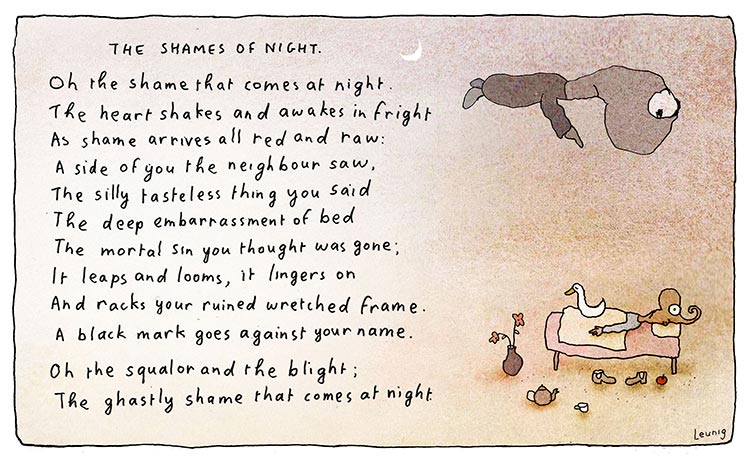 THE SHAMES OF NIGHT.
Oh the shame that comes at night.
The heart shakes and awakes in fright
As shame arrives all red and raw:
A side of you the neighbour saw,
The silly tasteless thing you said
The deep embarrassment of bed
The mortal sin you thought was gone;
It leaps and looms, it lingers on
And racks your ruined wretched frame.
A black mark goes against your name.
Oh the squalor and the blight;
The ghastly shame that comes at night
Leunig